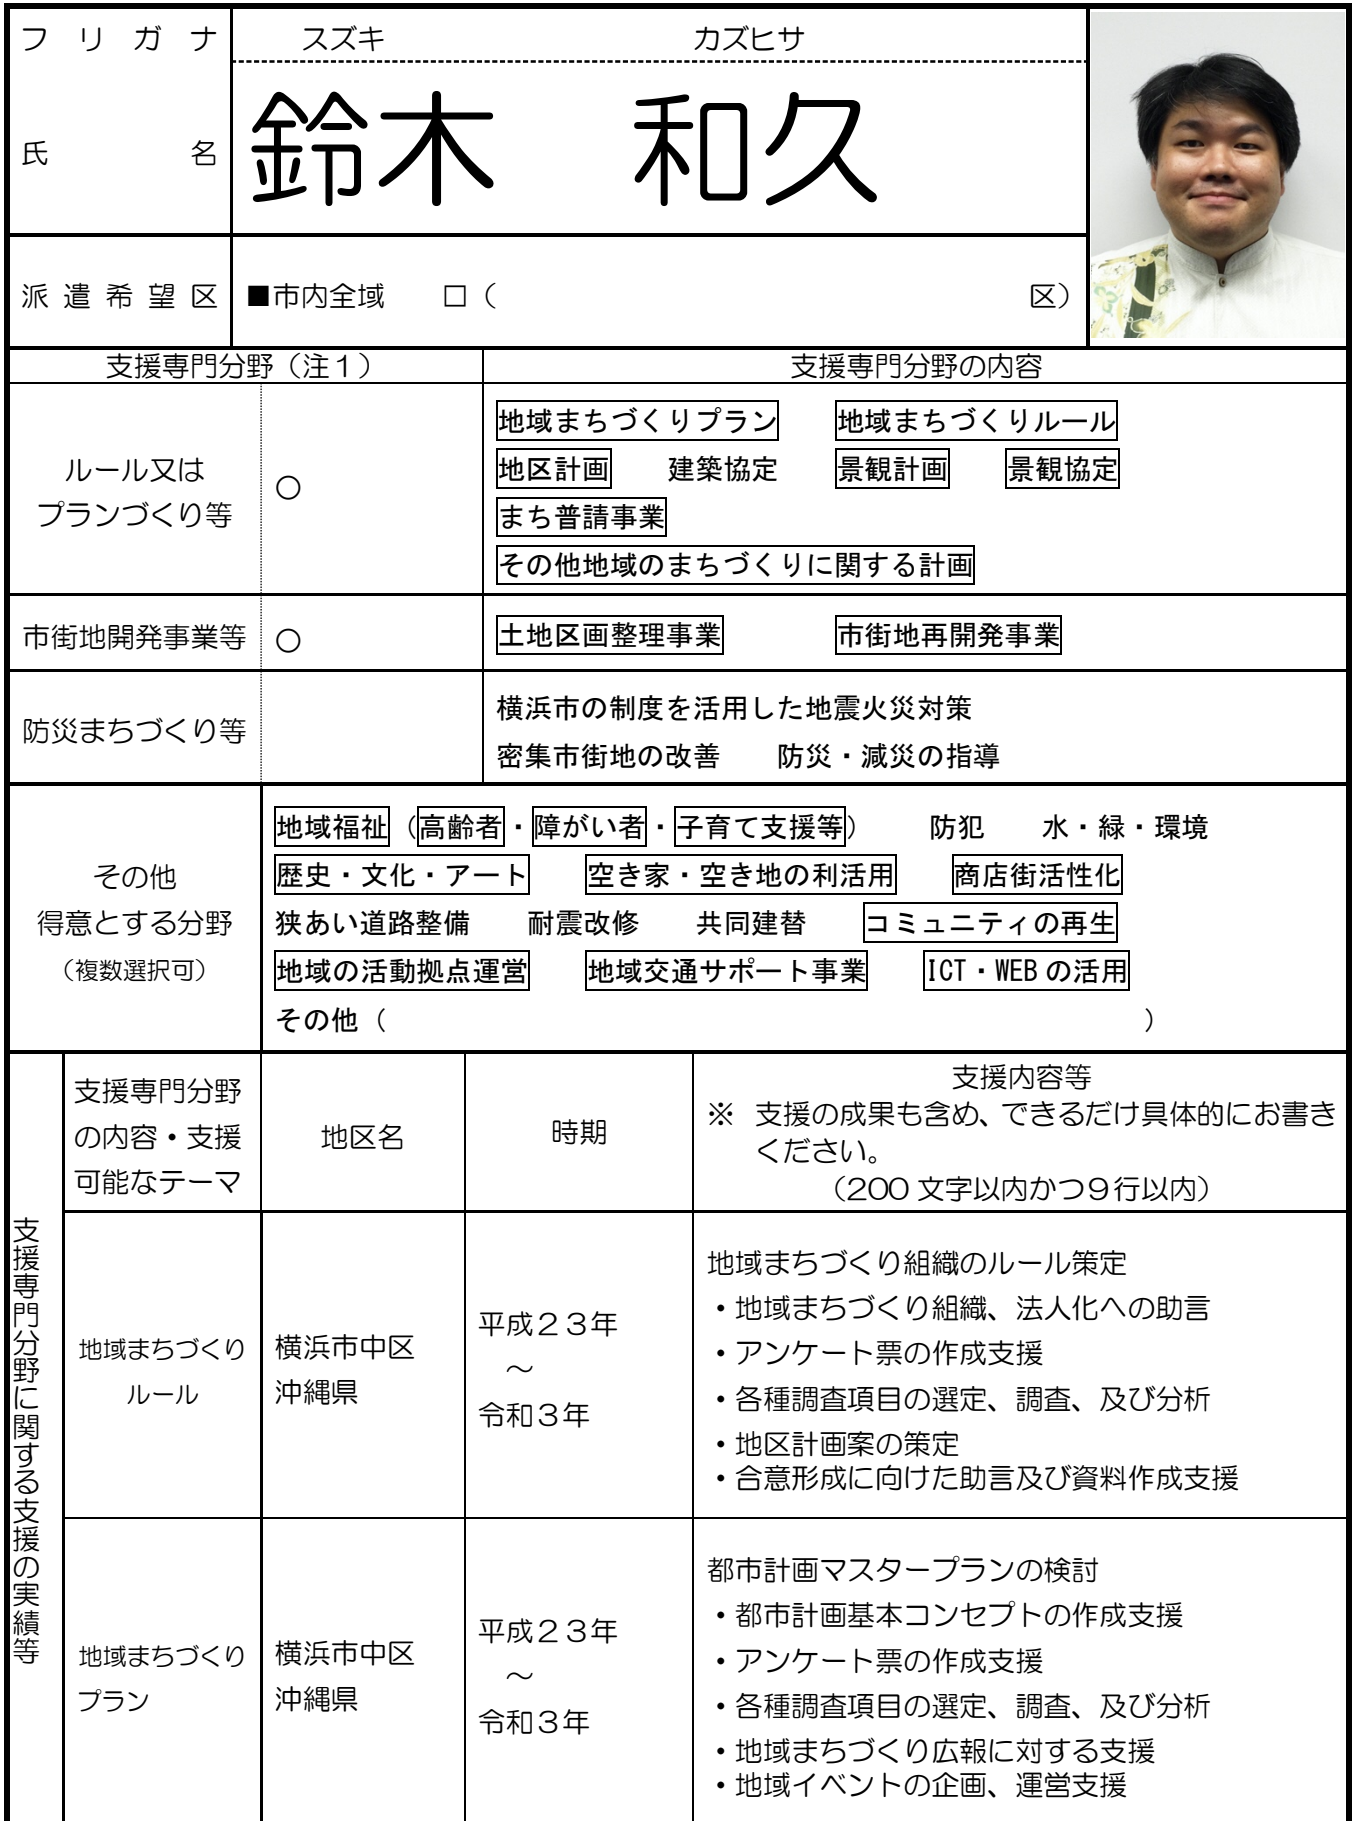 フリガナ スズキ カズヒサ
氏名 鈴木 和久
派遣希望区 ■市内全域 □（ 区）
支援専門分野（注１） 支援専門分野の内容
ルール又は
プランづくり等
○
地域まちづくりプラン 地域まちづくりルール
地区計画 建築協定 景観計画 景観協定
まち普請事業
その他地域のまちづくりに関する計画
市街地開発事業等 ○ 土地区画整理事業 市街地再開発事業
防災まちづくり等
横浜市の制度を活用した地震火災対策
密集市街地の改善 防災・減災の指導
その他
得意とする分野
（複数選択可）
地域福祉（高齢者・障がい者・子育て支援等） 防犯 水・緑・環境
歴史・文化・アート 空き家・空き地の利活用 商店街活性化
狭あい道路整備 耐震改修 共同建替 コミュニティの再生
地域の活動拠点運営 地域交通サポート事業 ICT・WEBの活用
その他（ ）
支援専門分野に関する支援の実績等
支援専門分野
の内容・支援
可能なテーマ
地区名
時期
支援内容等
※ 支援の成果も含め、できるだけ具体的にお書き
ください。
（200文字以内かつ９行以内）
地域まちづくり
ルール
横浜市中区
沖縄県
平成２３年
～
令和３年
地域まちづくり組織のルール策定
・地域まちづくり組織、法人化への助言
・アンケート票の作成支援
・各種調査項目の選定、調査、及び分析
・地区計画案の策定
・合意形成に向けた助言及び資料作成支援
地域まちづくり
プラン
横浜市中区
沖縄県
平成２３年
～
令和３年
都市計画マスタープランの検討
・都市計画基本コンセプトの作成支援
・アンケート票の作成支援
・各種調査項目の選定、調査、及び分析
・地域まちづくり広報に対する支援
・地域イベントの企画、運営支援